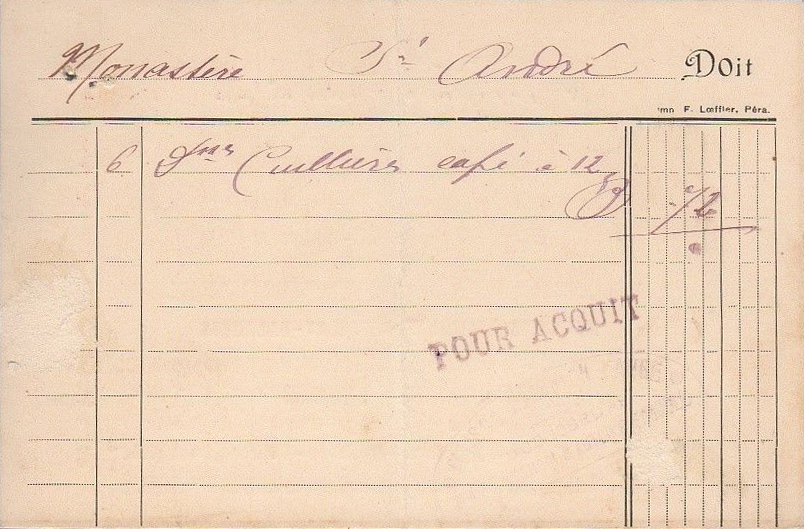 Monastère St André Doit
Imp. F. Lœffler, Péra.
6 Dnes Cuillières café à 12
72
POUR ACQUIT